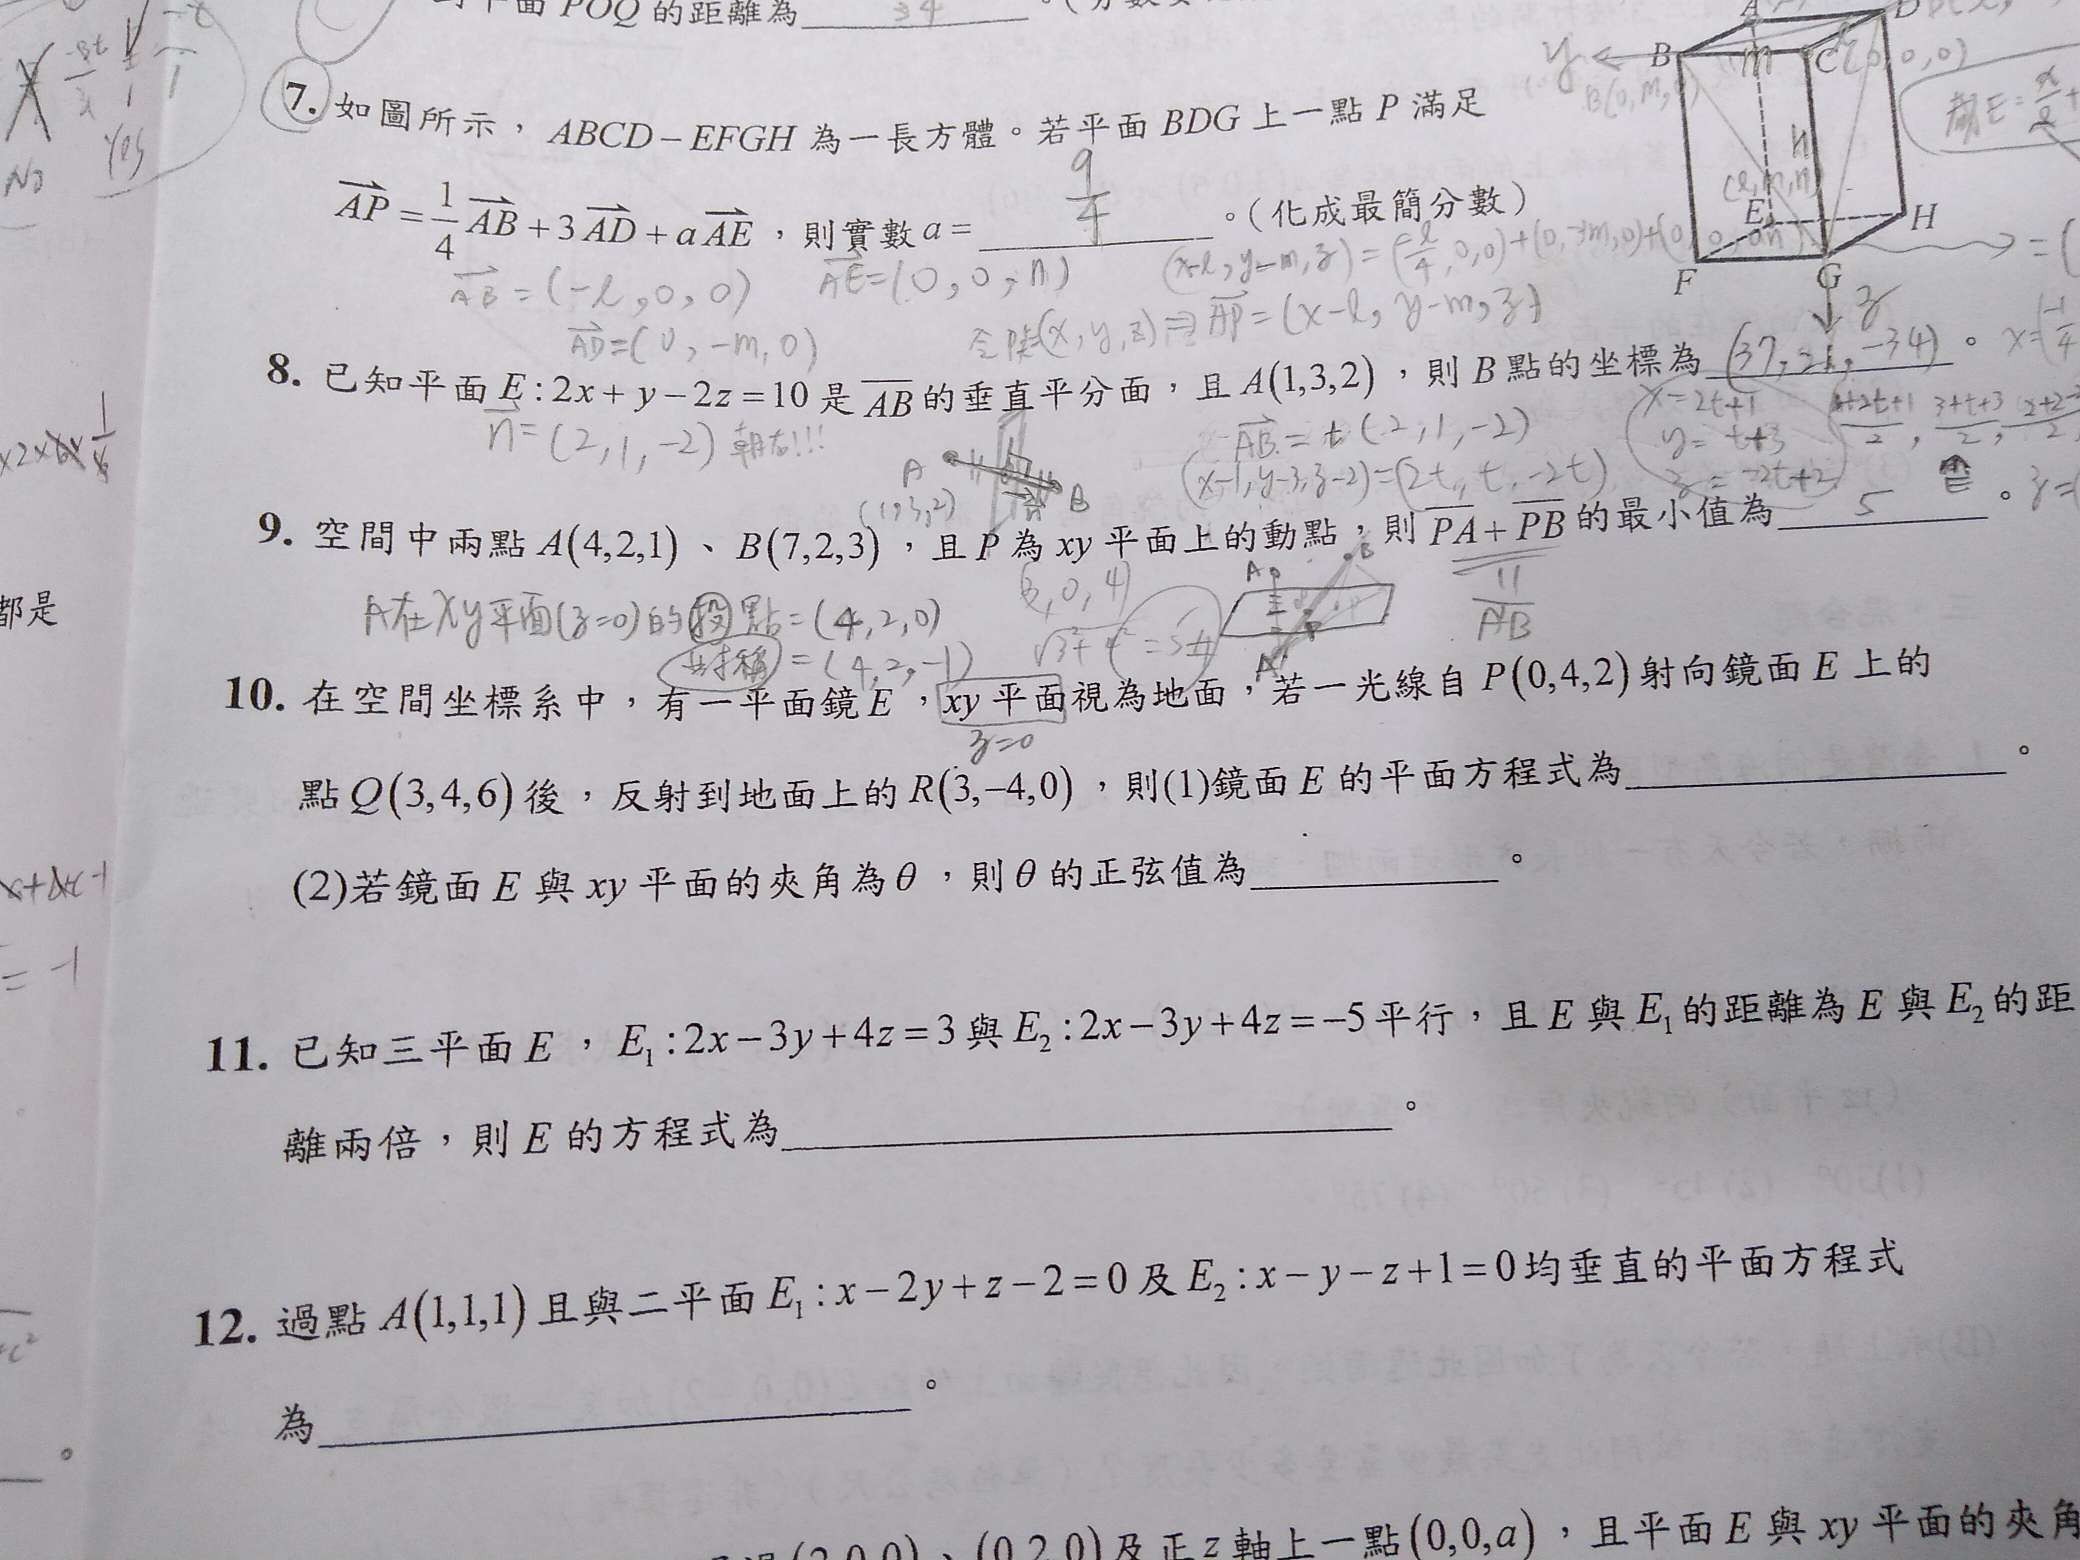 平面 POQ 的距離為 34 。(分數
7. 如圖所示，ABCD－EFGH 為一長方體。若平面 BDG 上一點 P 滿足
AP = 1/4 AB + 3 AD + a AE，則實數 a = 9/4 。(化成最簡分數)
AB = (-l, 0, 0) AE = (0, 0, n) (x-l, y-m, z) = (-l/4, 0, 0) +
AD = (0, -m, 0) (x, y, z) ⇒ AP = (x-l, y-m, z)
A
B
m
C
D
(0,0,0)
y
B(0,m,0)
n
(l,m,n)
E
H
F
G
z
8. 已知平面 E : 2x + y − 2z = 10 是 AB 的垂直平分面，且 A(1,3,2)，則 B 點的坐標為 。
n = (2, 1, -2) 朝右!!! A (1,3,2) n B
AB = t(2, 1, -2)
(x-1, y-3, z-2) = (2t, t, -2t)
x = 2t+1
y = t+3
z = -2t+2
9. 空間中兩點 A(4,2,1)、B(7,2,3)，且 P 為 xy 平面上的動點，則 PA + PB 的最小值為 5 。
A在xy平面(z=0)的投影點 = (4,2,0)
對稱 = (4,2,-1)
(3,0,4)
√3²+4² = 5
A B P A'
A'B
10. 在空間坐標系中，有一平面鏡 E，xy 平面視為地面，若一光線自 P(0,4,2) 射向鏡面 E 上的
z=0
點 Q(3,4,6) 後，反射到地面上的 R(3,−4,0)，則(1)鏡面 E 的平面方程式為 。
(2)若鏡面 E 與 xy 平面的夾角為 θ，則 θ 的正弦值為 。
11. 已知三平面 E，E₁ : 2x − 3y + 4z = 3 與 E₂ : 2x − 3y + 4z = −5 平行，且 E 與 E₁ 的距離為 E 與 E₂ 的距
離兩倍，則 E 的方程式為 。
12. 過點 A(1,1,1) 且與二平面 E₁ : x − 2y + z − 2 = 0 及 E₂ : x − y − z + 1 = 0 均垂直的平面方程式
為 。
(2,0,0)、(0,2,0) 及正 z 軸上一點 (0,0,a)，且平面 E 與 xy 平面的夾角
No
Yes
都是
= -1